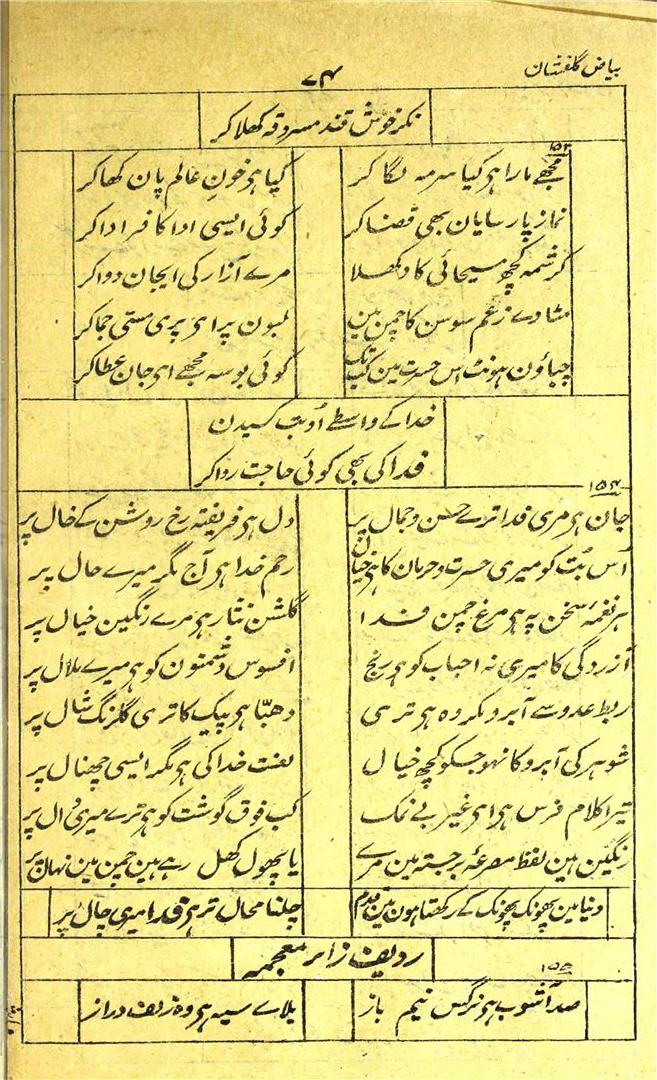 بیاض گلفشان
۷۴
نکر خوش قند مسروقہ کھلا کر
۱۵۳
مجھے مارا ہر کیا سرمہ لگا کر
کیا ہر خونِ عالم پان کھا کر
نماز پارسایان بھی قضا کر
کوئی ایسی ادا کافر ادا کر
کرشمہ کچھ مسیحائی کا دکھلا
مرے آزار کی ایجان دوا کر
مٹا دے زعم سوسن کا چمن مین
لبون پر ای پری مسّی جما کر
چباؤن ہونٹ اس حسرت مین کب تک
کوئی بوسہ مجھے ای جان عطا کر
خدا کے واسطے اُو بت
فدا کی بھی کوئی حاجت روا کر
۱۵۴
جان ہر مری فدا ترے حسن و جمال پر
دل ہر فریفتہ رخ روشن کے خال پر
اُس بُت کو میری حسرت و حرمان کا ہر خیال
رحم خدا ہر آج مگر میرے حال پر
ہر نغمۂ سخن پہ ہر مرغ چمن فدا
گلشن نثار ہر مرے رنگین خیال پر
آزردگی کا میری نہ احباب کو ہر رنج
افسوس دشمنون کو ہر میرے ملال پر
ربط عدو سے آبرو مکروہ ہر تری
دھبّا ہر پیک کا تری گلرنگ شال پر
شوہر کی آبرو کا نہو جسکو کچھ خیال
لعنت خدا کی ہر مگر ایسی چھنال پر
تیرا کلام فرس ہر ای غیر بے نمک
کب فوق گوشت کو ہر ترے میری دال پر
رنگین ہین لفظ مصرعۂ برجستہ مین مرے
یا پھول کھل رہے ہین چمن مین نہال پر
دنیا مین پھونک پھونک کے رکھتا ہون مین قدم
چلنا محال تر ہر فدا میری چال پر
ردیف زائے معجمہ
۱۵۵
صد آشوب ہر نرگس نیم باز
بلائے سیہ ہر وہ زلف دراز